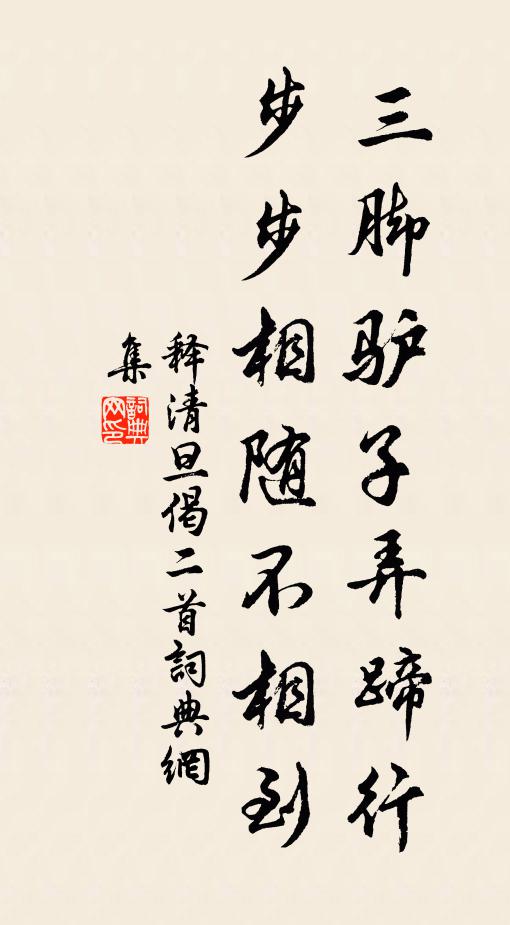 三脚驴子弄蹄行
步步相随不相到
释清旦偈二首詞典網
集
詞典
网印